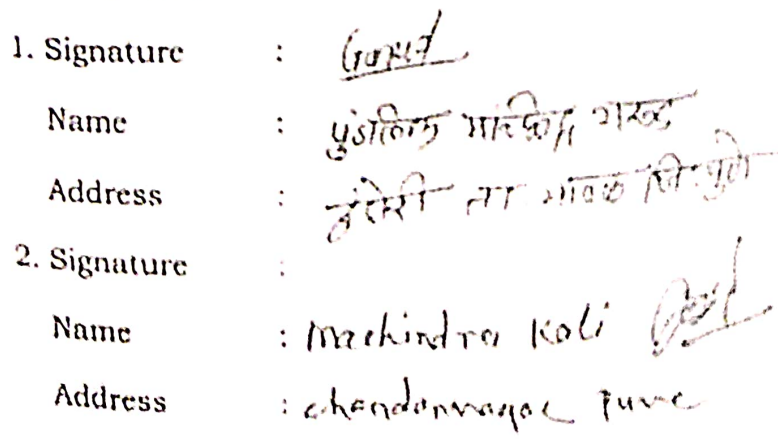 1. Signature :
Name : पुंडलिक गरूड
Address : ता मावळ जि. पुणे
2. Signature :
Name : Machindra Koli
Address : chandannagar Pune